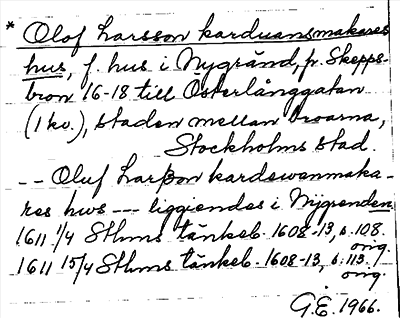 * Olof Larsson karduansmakares
hus, f. hus i Nygränd, fr. Skepps-
bron 16-18 till Österlånggatan
(1 kv.), staden mellan broarna,
Stockholms stad.
-- Oluf Larßon kardewanmaka-
res hws --- liggiendes i Nijgrenden
1611 1/4 Sthms tänkeb. 1608-13, s. 108.
orig.
1611 15/4 Sthms tänkeb. 1608-13, s. 113.
orig.
G.E. 1966.